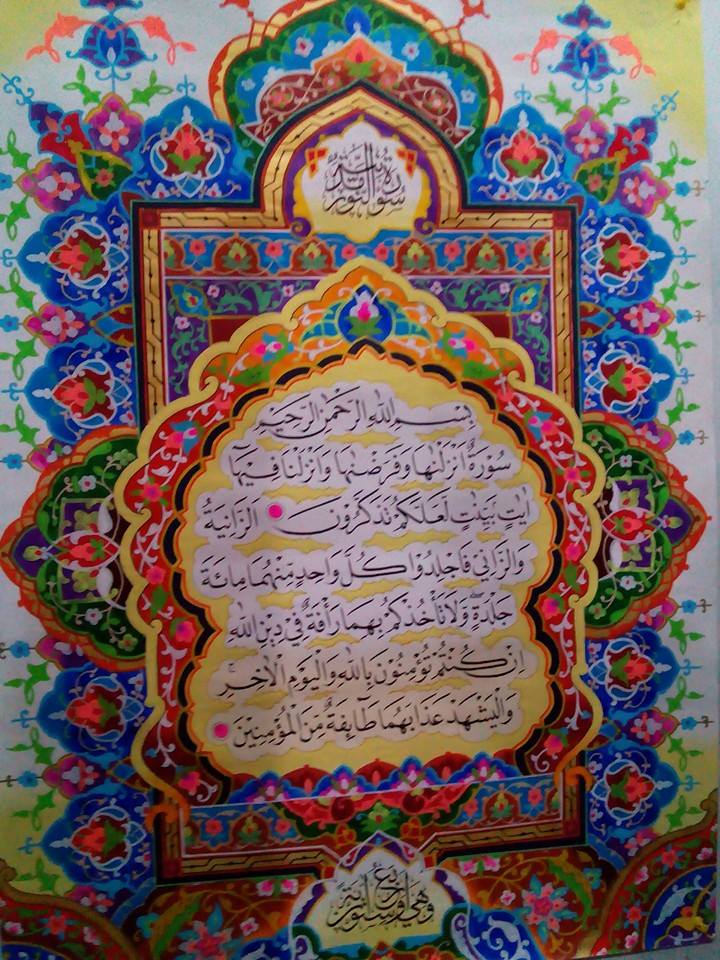 سورة النور مدنية
بِسْمِ اللهِ الرَّحْمٰنِ الرَّحِيْمِ
سُوْرَةٌ اَنْزَلْنٰهَا وَفَرَضْنٰهَا وَاَنْزَلْنَا فِيْهَآ
اٰيٰتٍۢ بَيِّنٰتٍ لَّعَلَّكُمْ تَذَكَّرُوْنَ اَلزَّانِيَةُ
وَالزَّانِيْ فَاجْلِدُوْا كُلَّ وَاحِدٍ مِّنْهُمَا مِائَةَ
جَلْدَةٍ ۖوَّلَا تَأْخُذْكُمْ بِهِمَا رَأْفَةٌ فِيْ دِيْنِ اللهِ
اِنْ كُنْتُمْ تُؤْمِنُوْنَ بِاللهِ وَالْيَوْمِ الْاٰخِرِۚ
وَلْيَشْهَدْ عَذَابَهُمَا طَآئِفَةٌ مِّنَ الْمُؤْمِنِيْنَ
وهي اربع وستون اية